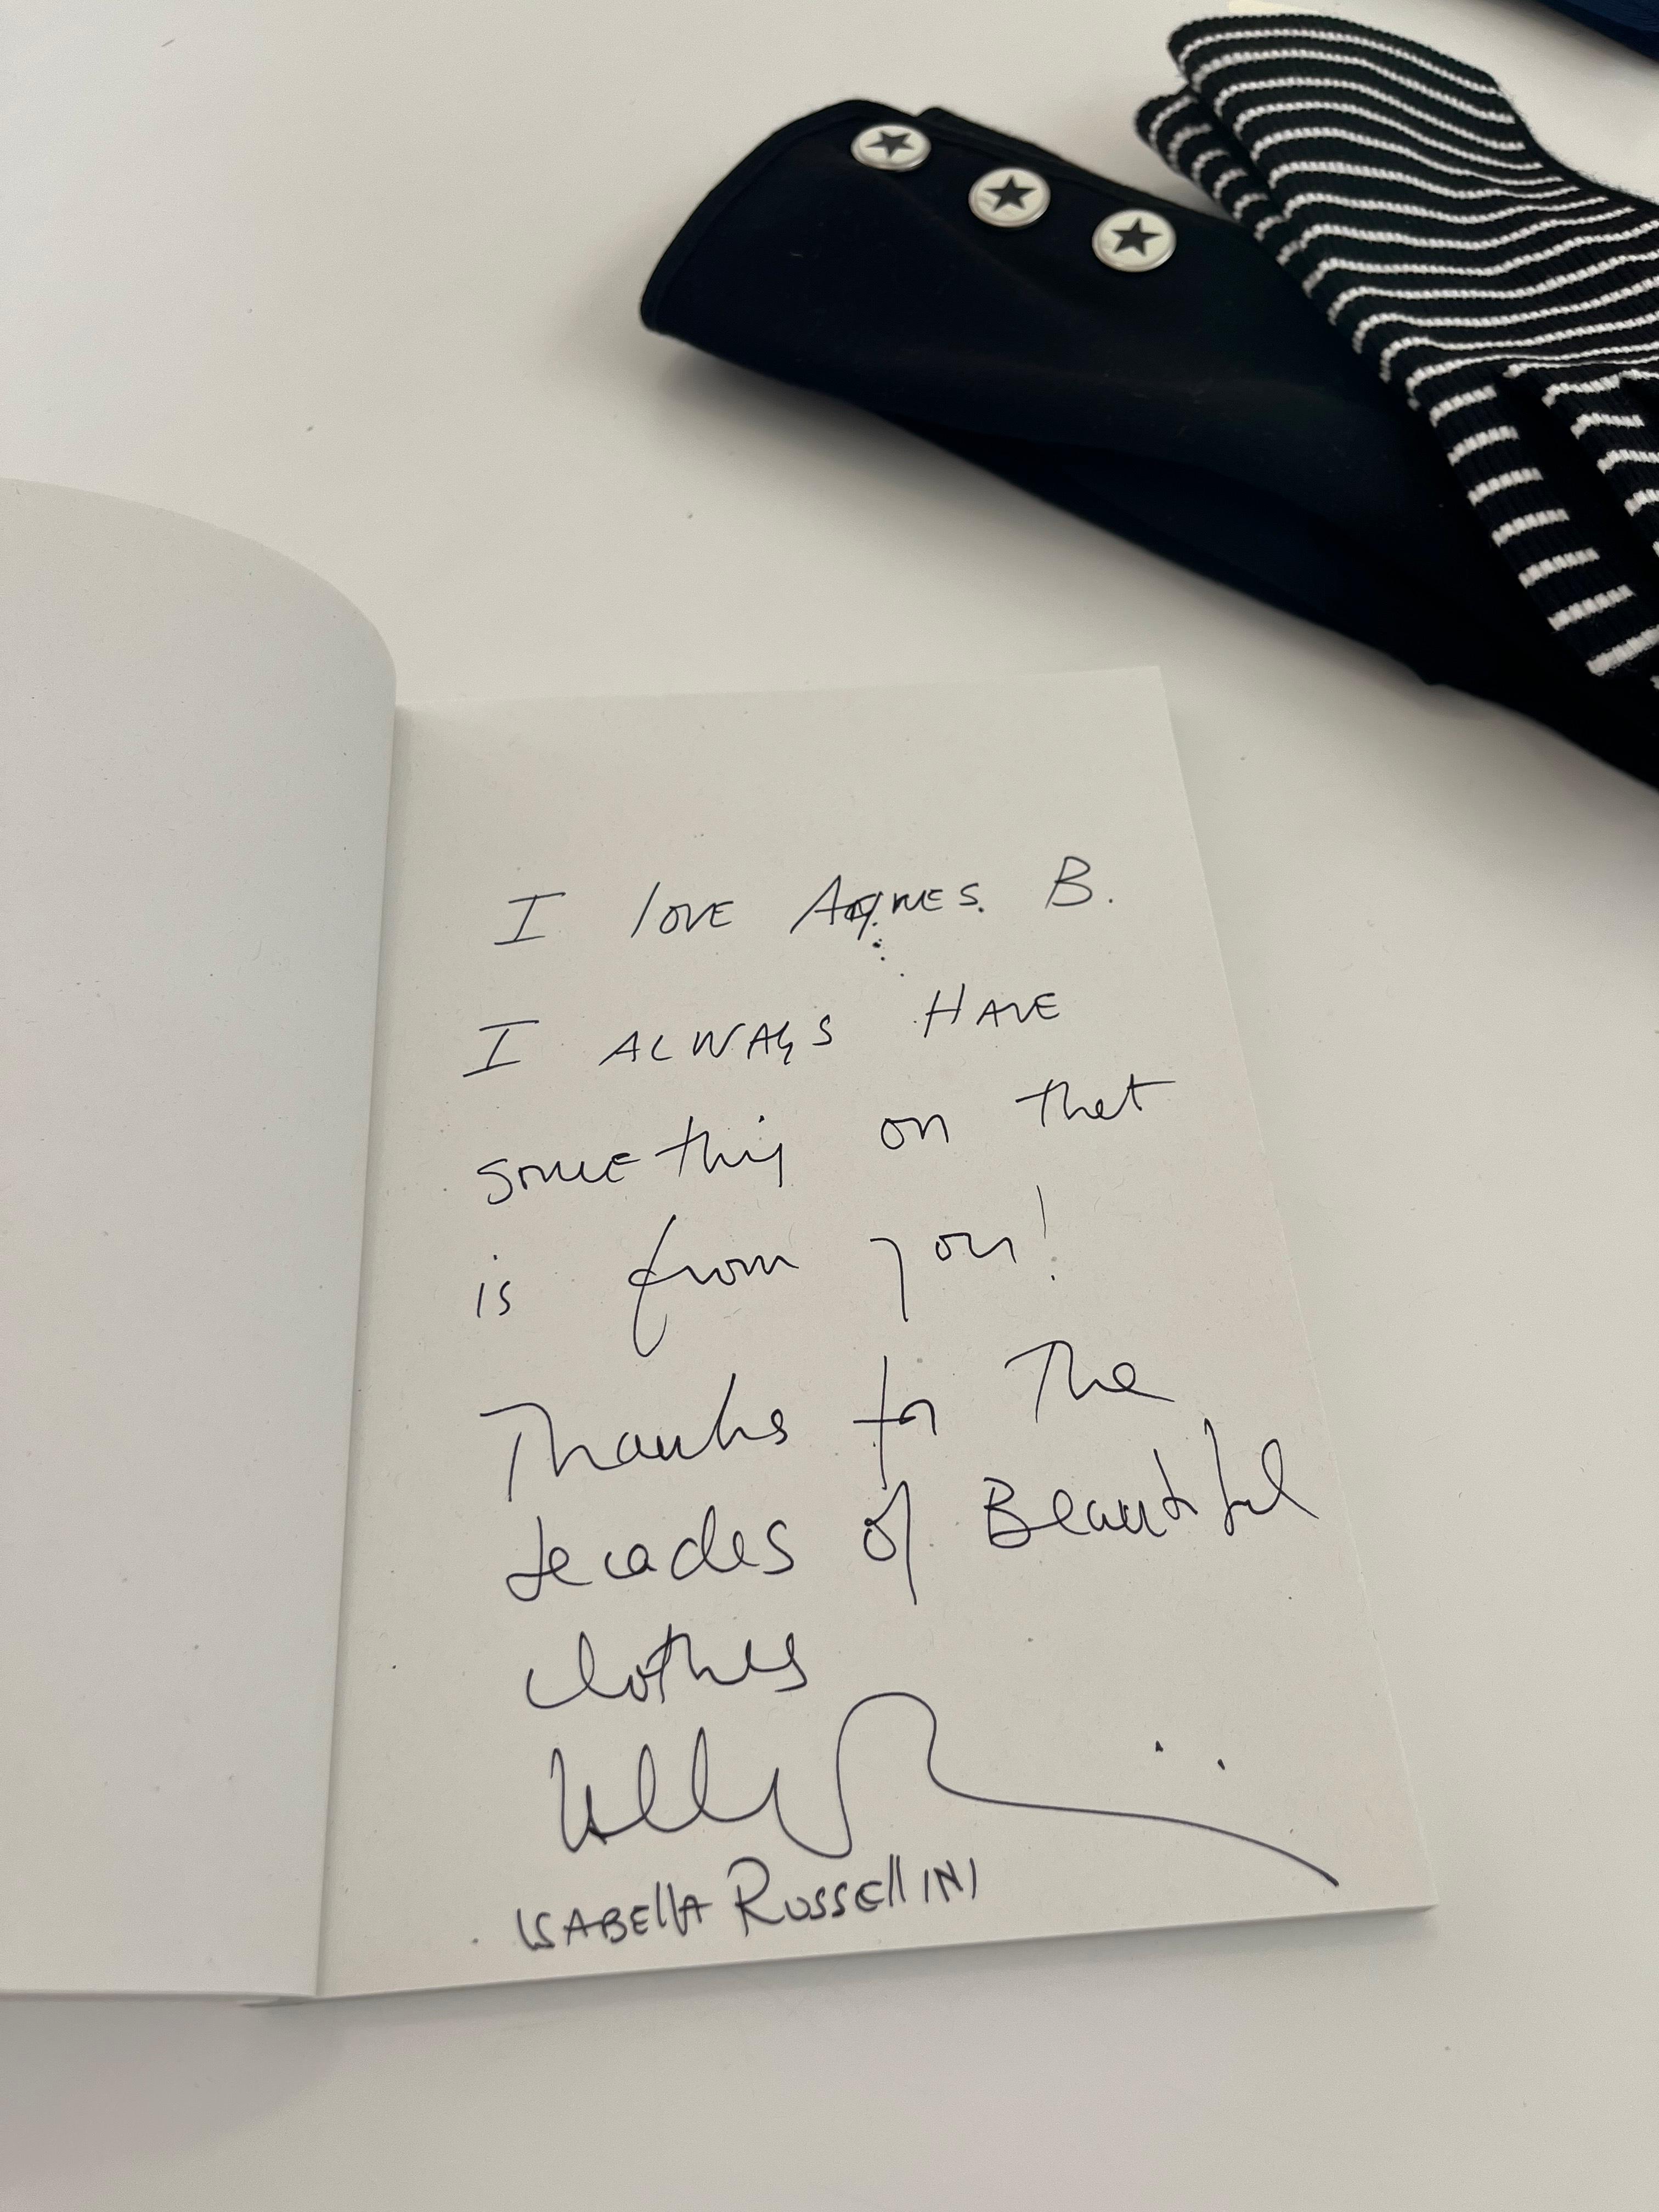 I love Agnes. B.
I ALWAYS HAVE
something on that
is from you!
Thanks for The
decades of Beautiful
clothes
ISABELLA ROSSELLINI